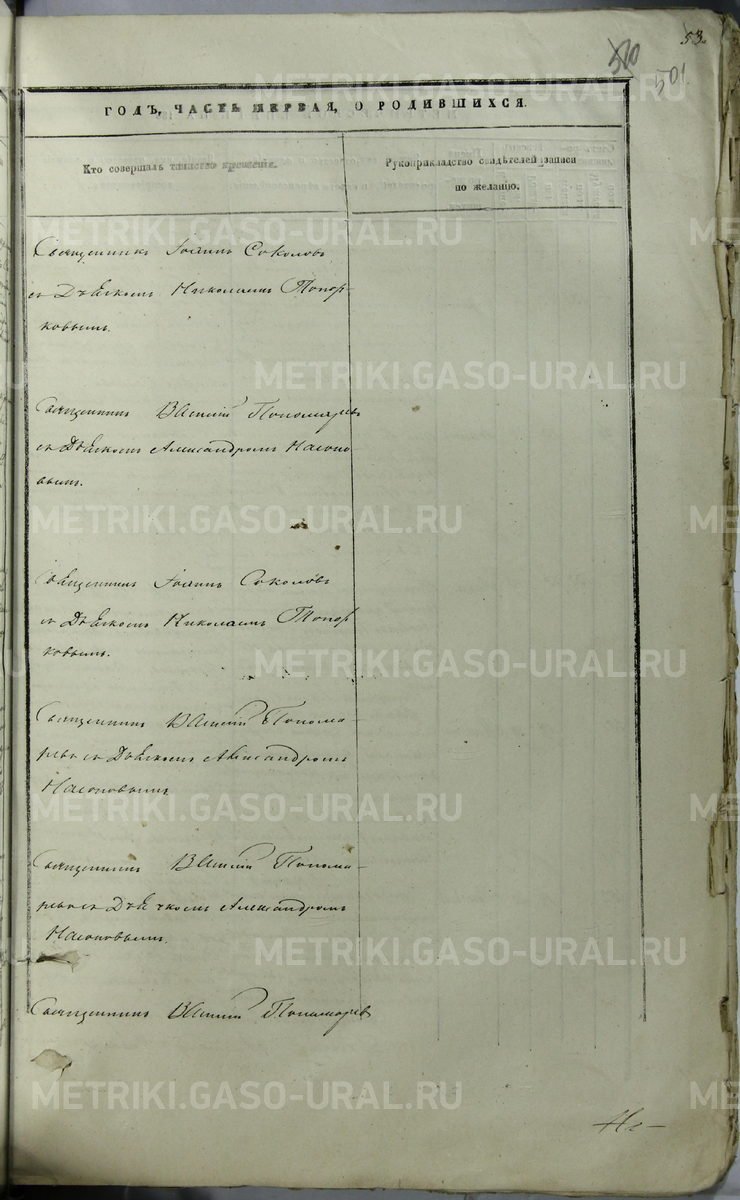 53.
510
501.
ГОДЪ, ЧАСТЬ ПЕРВАЯ, О РОДИВШИХСЯ.
Кто совершалъ таинство крещенія.
Рукоприкладство свидѣтелей записи
по желанію.
Священникъ Іоаннъ Соколовъ
съ Дьячкомъ Николаемъ Топор-
ковымъ.
Священникъ Василій Пономаревъ
съ Дьячкомъ Александромъ Насоно-
вымъ.
Священникъ Іоаннъ Соколовъ
съ Дьячкомъ Николаемъ Топор
ковымъ.
Священникъ Василій Понома-
ревъ съ Дьячкомъ Александромъ
Насоновымъ
Священникъ Василій Понома-
ревъ съ Дьячкомъ Александромъ
Насоновымъ.
Священникъ Василій Пономаревъ
METRIKI.GASO-URAL.RU